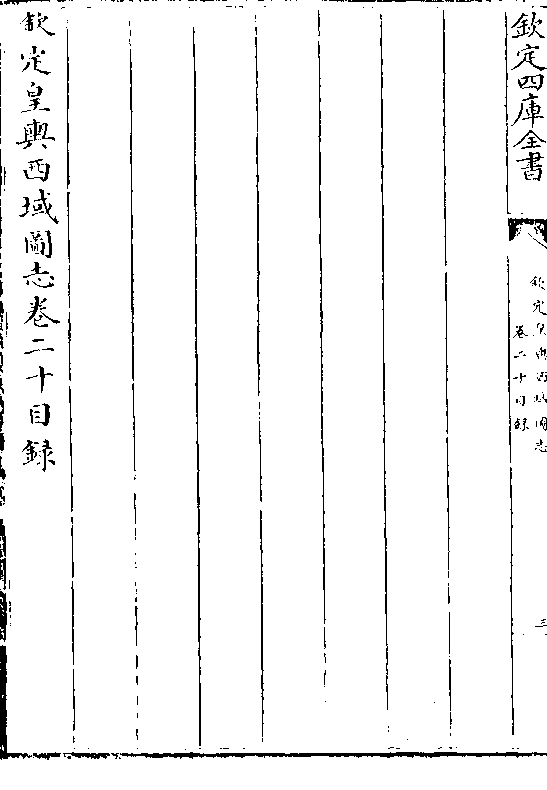 欽定四庫全書
欽定皇輿西域圖志
卷二十目録
三
欽定皇輿西域圖志卷二十目録